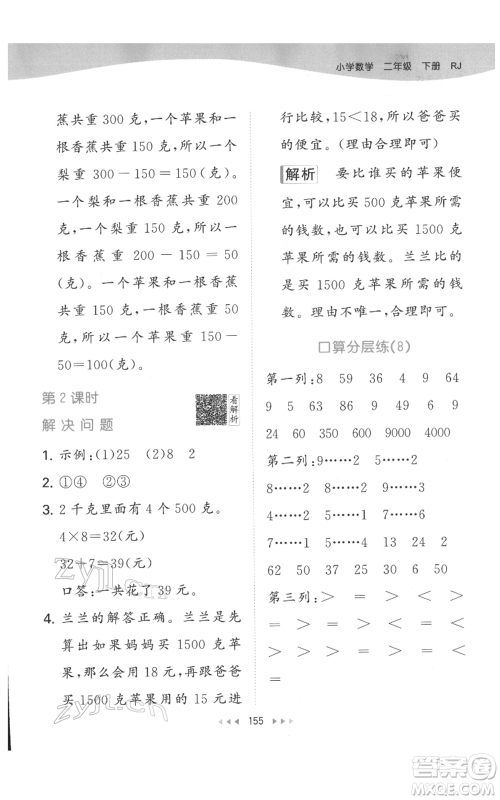 小学数学 二年级 下册 RJ
蕉共重 300 克，一个苹果和一
根香蕉共重 150 克，所以一个
梨重 300－150＝150(克)。
一个梨和一根香蕉共重 200
克，一个梨重 150 克，所以一
根香蕉重 200－150＝50
(克)。一个苹果和一根香蕉
重 150 克，一根香蕉重 50
克，所以一个苹果重 150－
50＝100(克)。
第 2 课时
解决问题
看解析
1. 示例：(1)25 (2)8 2
2. ①④ ②③
3. 2 千克里面有 4 个 500 克。
4×8＝32(元)
32＋7＝39(元)
口答：一共花了 39 元。
4. 兰兰的解答正确。兰兰是先
算出如果妈妈买 1500 克苹
果，那么会用 18 元，再跟爸爸
买 1500 克苹果用的 15 元进
行比较，15＜18，所以爸爸买
的便宜。(理由合理即可)
解析 要比谁买的苹果便
宜，可以比买 500 克苹果所需
的钱数，也可以比买 1500 克
苹果所需的钱数。兰兰比的
是买 1500 克苹果所需的钱
数。理由不唯一，合理即可。
口算分层练(8)
第一列：8 59 36 4 9 64
9 5 63 86 9 9 9
24 60 350 900 9000 4000
第二列：9……2 5……2
8……2 8……2 6……2
4……1 7……5 7……5
62 50 8 38 30 32
第三列：＞ ＝ ＞ ＜ ＞
＞ ＞ ＜ ＞ ＜ ＞ ＞
155
zyjl.cn
zyjl.cn
作业精灵